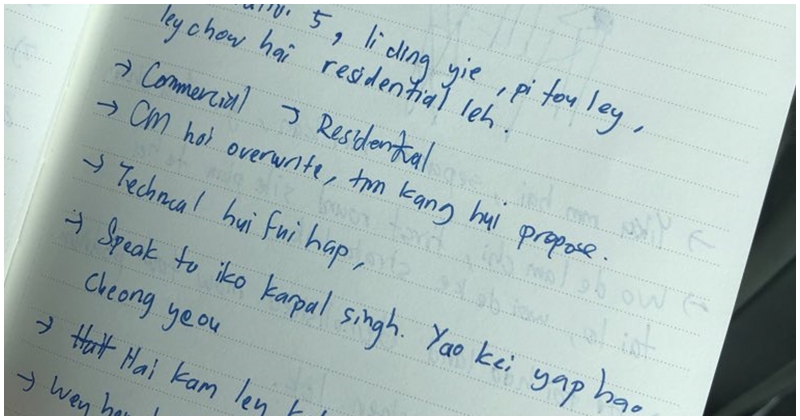 5, li ding yie, pi tou ley,
ley chow hai residential leh.
→ Commercial → Residential
→ CM hai overwrite, tm kang hui propose.
→ Technical hui fui hap,
→ Speak to iko karpal singh. Yao kei yap hao
Cheong yeou
→ Hai kam ley
→ Wey